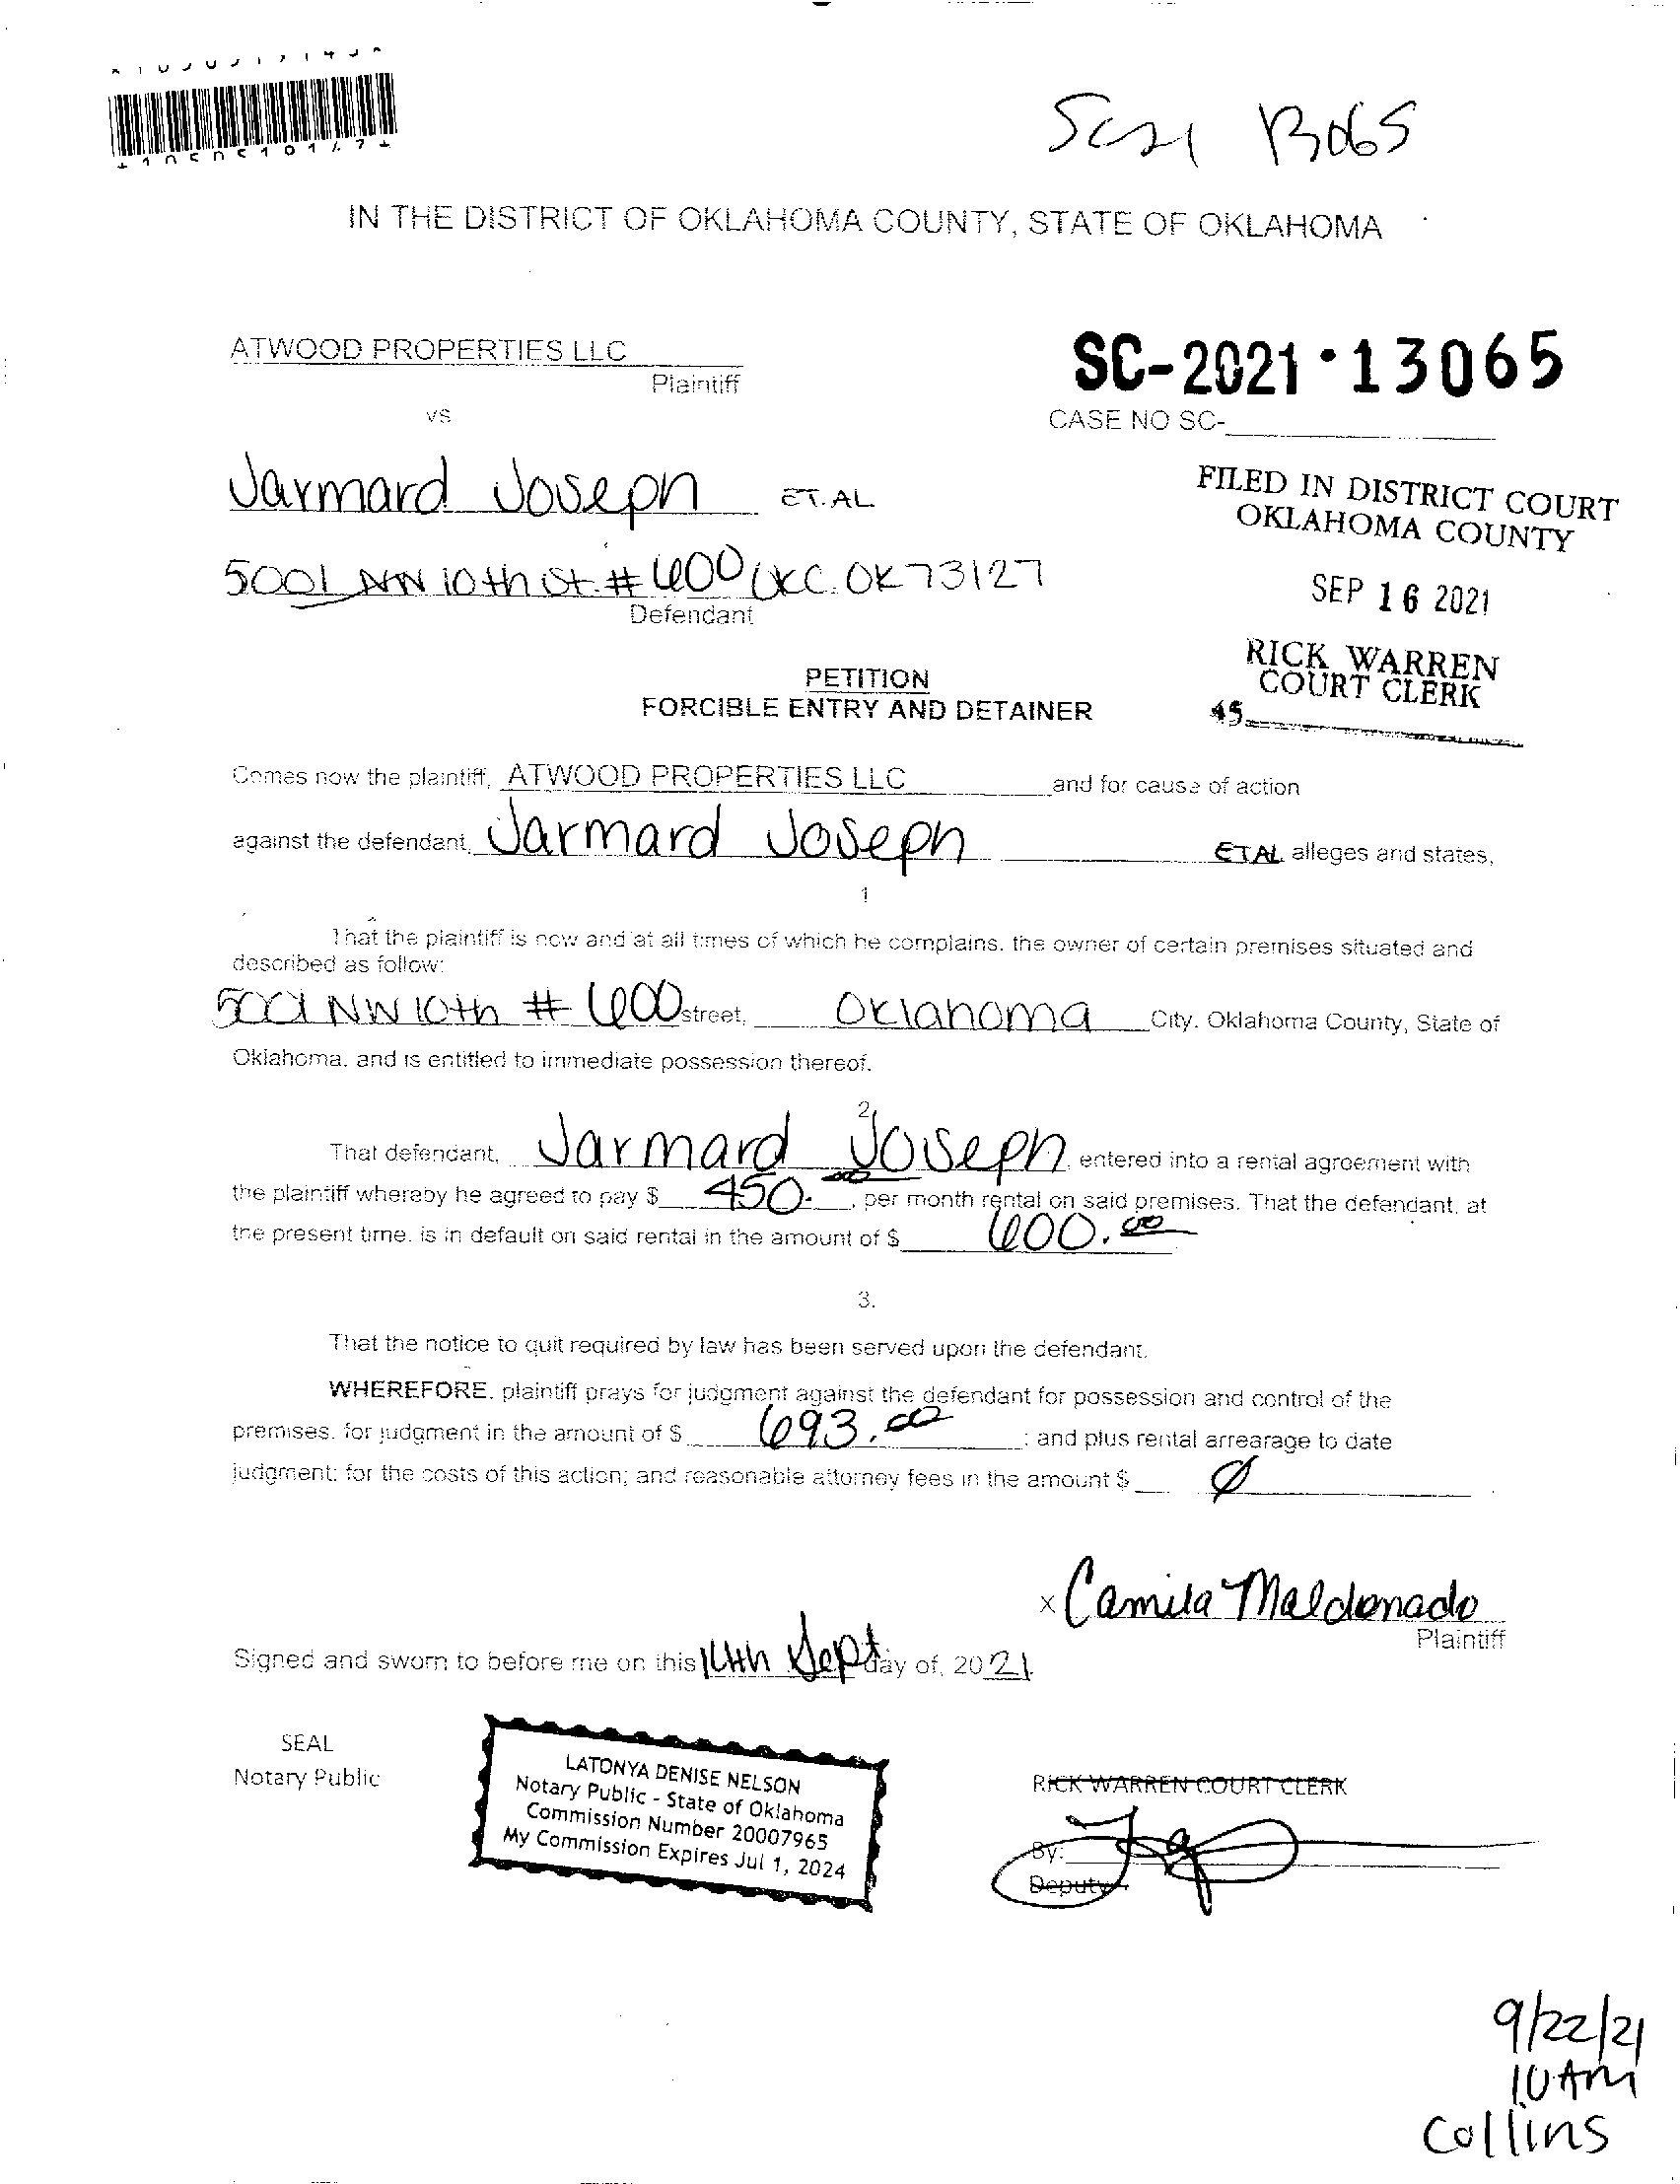 SC21 13065
IN THE DISTRICT OF OKLAHOMA COUNTY, STATE OF OKLAHOMA
ATWOOD PROPERTIES LLC
Plaintiff
SC-2021·13065
vs
CASE NO SC-
Jarmard Joseph ET.AL
FILED IN DISTRICT COURT
OKLAHOMA COUNTY
5001 NW 10th St. # 600 OKC. OK 73127
Defendant
SEP 16 2021
RICK WARREN
COURT CLERK
45
PETITION
FORCIBLE ENTRY AND DETAINER
Comes now the plaintiff, ATWOOD PROPERTIES LLC and for cause of action
against the defendant, Jarmard Joseph ETAL alleges and states,
1
That the plaintiff is now and at all times of which he complains. the owner of certain premises situated and
described as follow:
5001 NW 10th # 600 street, Oklahoma City. Oklahoma County, State of
Oklahoma. and is entitled to immediate possession thereof.
2
That defendant, Jarmard Joseph entered into a rental agreement with
the plaintiff whereby he agreed to pay $ 450.00, per month rental on said premises. That the defendant, at
the present time. is in default on said rental in the amount of $ 600.00
3.
That the notice to quit required by law has been served upon the defendant.
WHEREFORE. plaintiff prays for judgment against the defendant for possession and control of the
premises. for judgment in the amount of $ 693.00 ; and plus rental arrearage to date
judgment: for the costs of this action; and reasonable attorney fees in the amount $ Ø
x Camila Maldonado
Plaintiff
Signed and sworn to before me on this Sept day of, 2021
SEAL
Notary Public
LATONYA DENISE NELSON
Notary Public - State of Oklahoma
Commission Number 20007965
My Commission Expires Jul 1, 2024
RICK WARREN COURT CLERK
By:
Deputy
9/22/21
10 AM
Collins